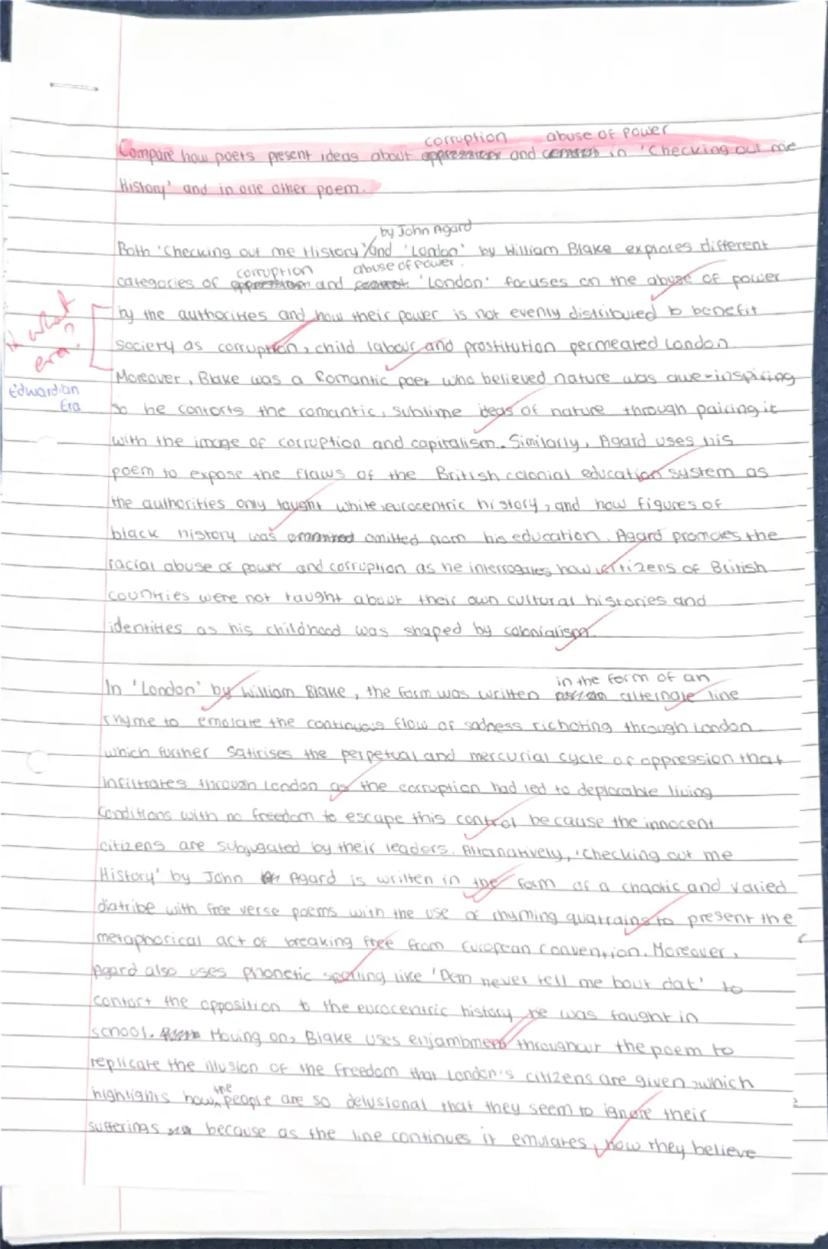 corruption abuse of power
Compare how poets present ideas about and in 'Checking out me
History' and in one other poem.
by John Agard
Both 'Checking out me History' and 'London' by William Blake explores different
corruption abuse of power.
categories of and 'London' focuses on the abuse of power
by the authorities and how their power is not evenly distributed to benefit
society as corruption, child labour and prostitution permeated London.
* what era?
Moreover, Blake was a Romantic poet who believed nature was awe-inspiring
Edwardian
Era
so he contorts the romantic, sublime ideas of nature through pairing it
with the image of corruption and capitalism. Similarly, Agard uses his
poem to expose the flaws of the British colonial education system as
the authorities only taught white eurocentric history, and how figures of
black history was omitted from his education. Agard promotes the
racial abuse of power and corruption as he interrogates how citizens of British
countries were not taught about their own cultural histories and
identities as his childhood was shaped by colonialism.
in the form of an
In 'London' by William Blake, the form was written alternate line
rhyme to emolate the continuous flow of sadness richoting through London
which further satirises the perpetual and mercurial cycle of oppression that
infiltrates through London as the corruption had led to deplorable living
conditions with no freedom to escape this control because the innocent
citizens are subjugated by their leaders. Alternatively, 'Checking out me
History' by John Agard is written in the form of a chaotic and varied
diatribe with free verse poems with the use of rhyming quatrains to present the
metaphorical act of breaking free from European convention. Moreover,
Agard also uses phonetic spelling like 'Dem never tell me bout dat' to
contort the opposition to the eurocentric history he was taught in
school. Moving on, Blake uses enjambment throughout the poem to
replicate the illusion of the freedom that London's citizens are given which
highlights how the people are so delusional that they seem to ignore their
sufferings because as the line continues it emulates, how they believe